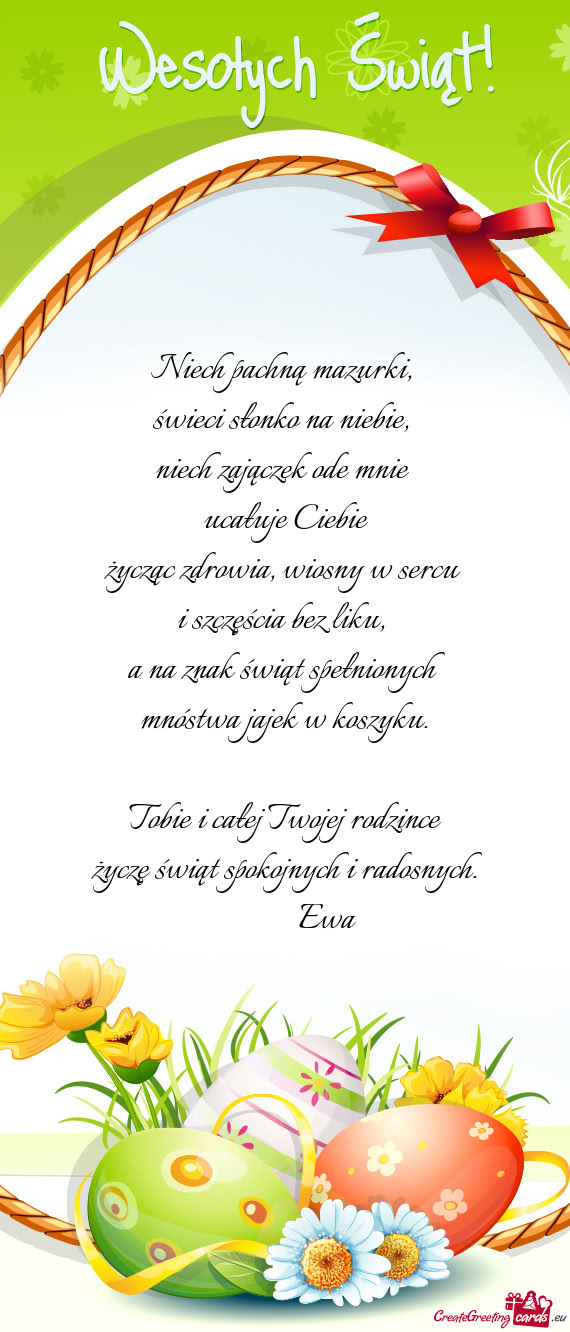 Wesołych Świąt!
Niech pachną mazurki,
świeci słonko na niebie,
niech zajączek ode mnie
ucałuje Ciebie
życząc zdrowia, wiosny w sercu
i szczęścia bez liku,
a na znak świąt spełnionych
mnóstwa jajek w koszyku.
Tobie i całej Twojej rodzince
życzę świąt spokojnych i radosnych.
Ewa
CreateGreeting cards .eu